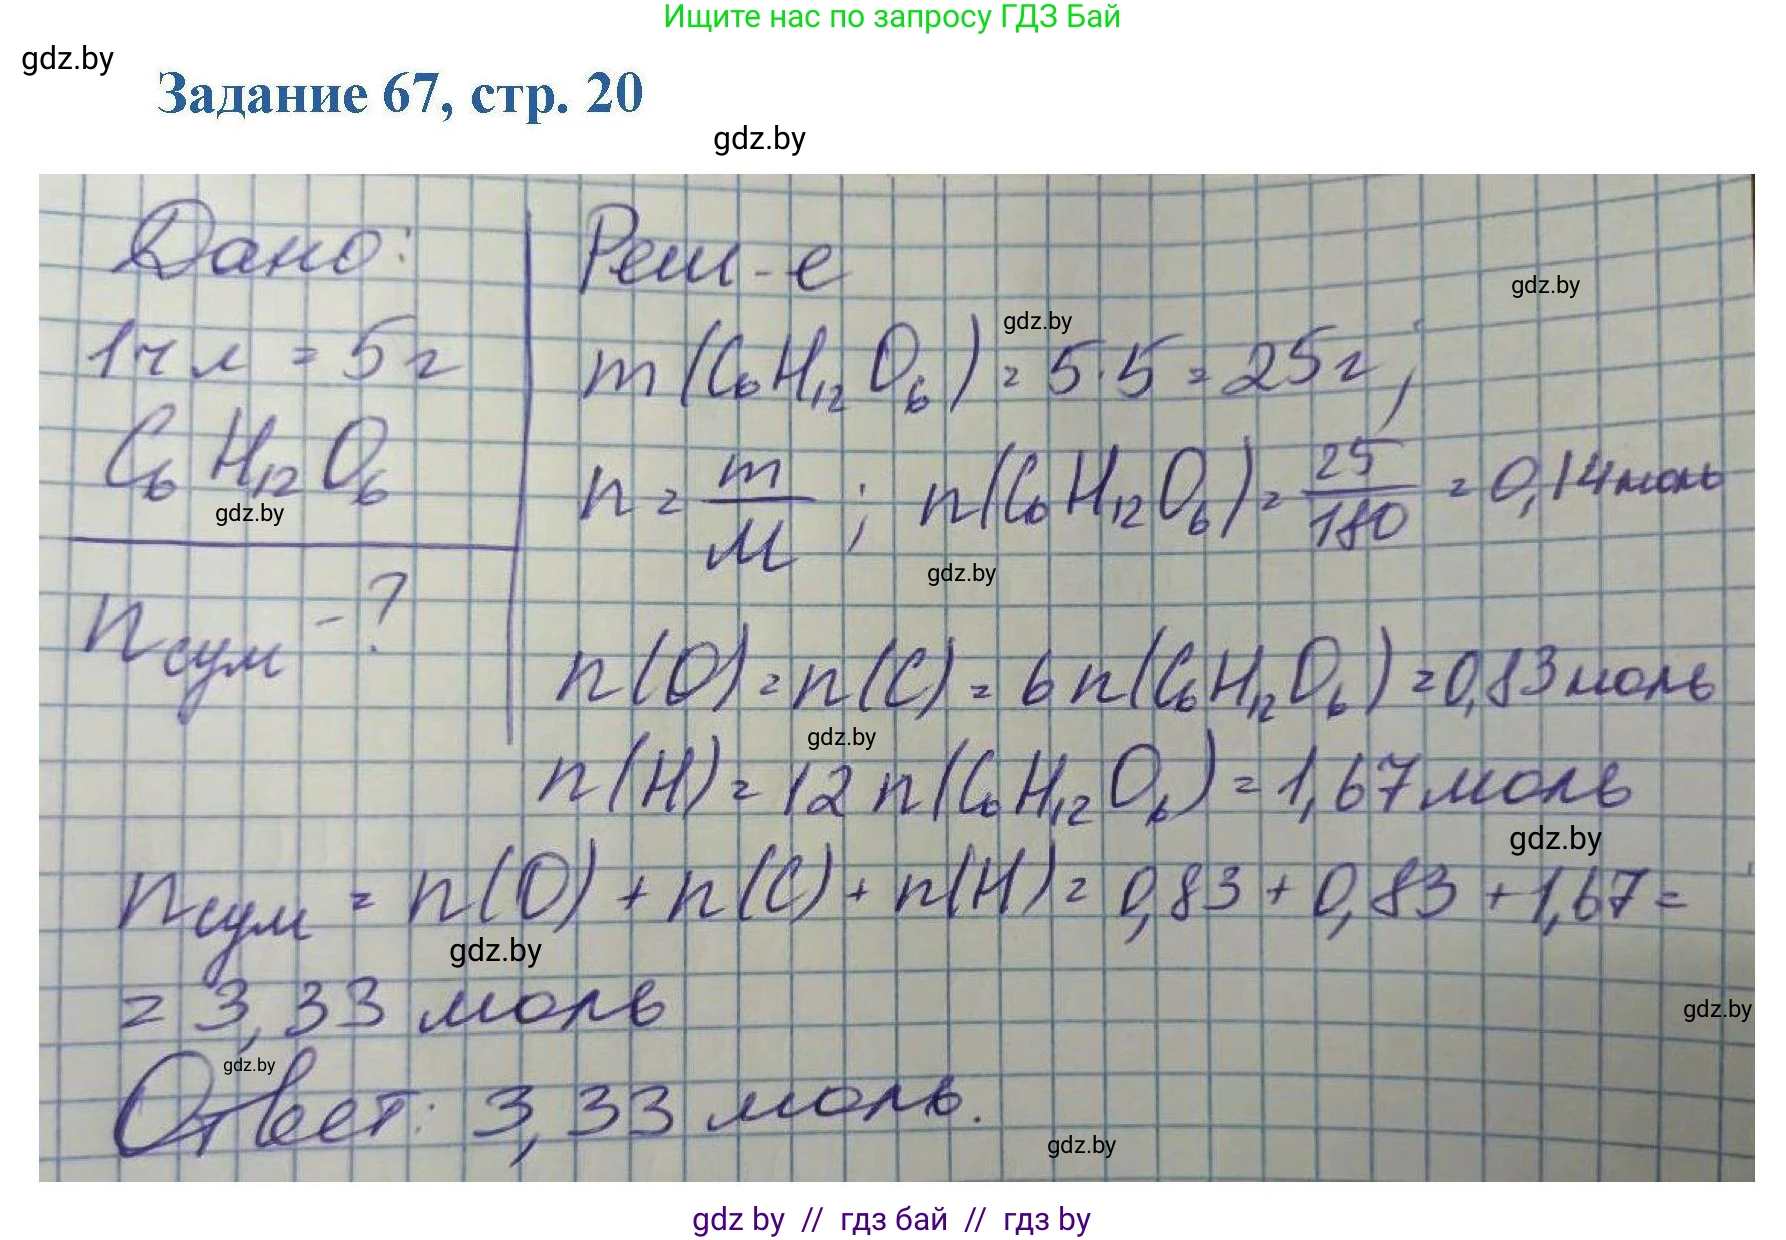 Ищите нас по запросу ГДЗ Бай
gdz.by
Задание 67, стр. 20
gdz.by
Дано:
1 ч л = 5 г
C6H12O6
gdz.by
nсум - ?
Реш-е
gdz.by
gdz.by
m(C6H12O6) = 5·5 = 25г;
n = m/M ; n(C6H12O6) = 25/180 = 0,14 моль
gdz.by
n(O) = n(C) = 6 n(C6H12O6) = 0,83 моль
gdz.by
n(H) = 12 n(C6H12O6) = 1,67 моль
gdz.by
nсум = n(O) + n(C) + n(H) = 0,83 + 0,83 + 1,67 =
gdz.by
= 3,33 моль
gdz.by
gdz.by
Ответ: 3,33 моль.
gdz.by
gdz by // гдз бай // гдз by